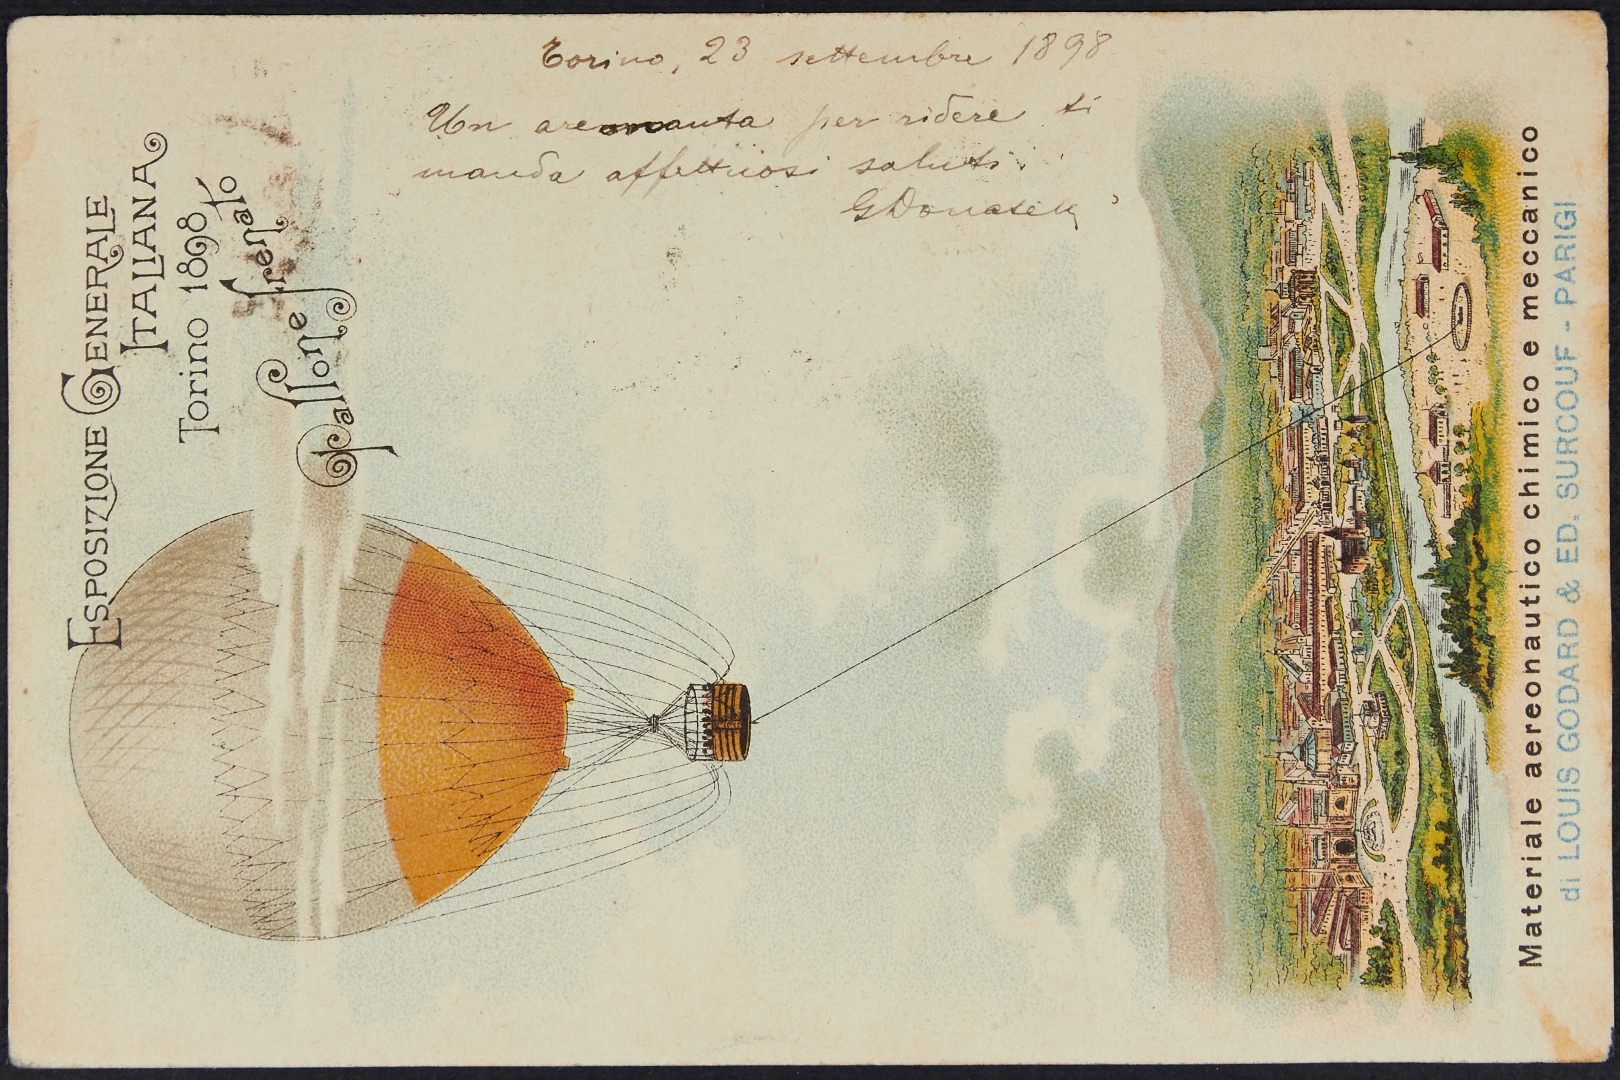 Torino, 23 settembre 1898
Un areonauta per ridere ti
manda affettuosi saluti.
ESPOSIZIONE GENERALE
ITALIANA
Torino 1898
Pallone frenato
Materiale aereonautico chimico e meccanico
di LOUIS GODARD & ED. SURCOUF - PARIGI